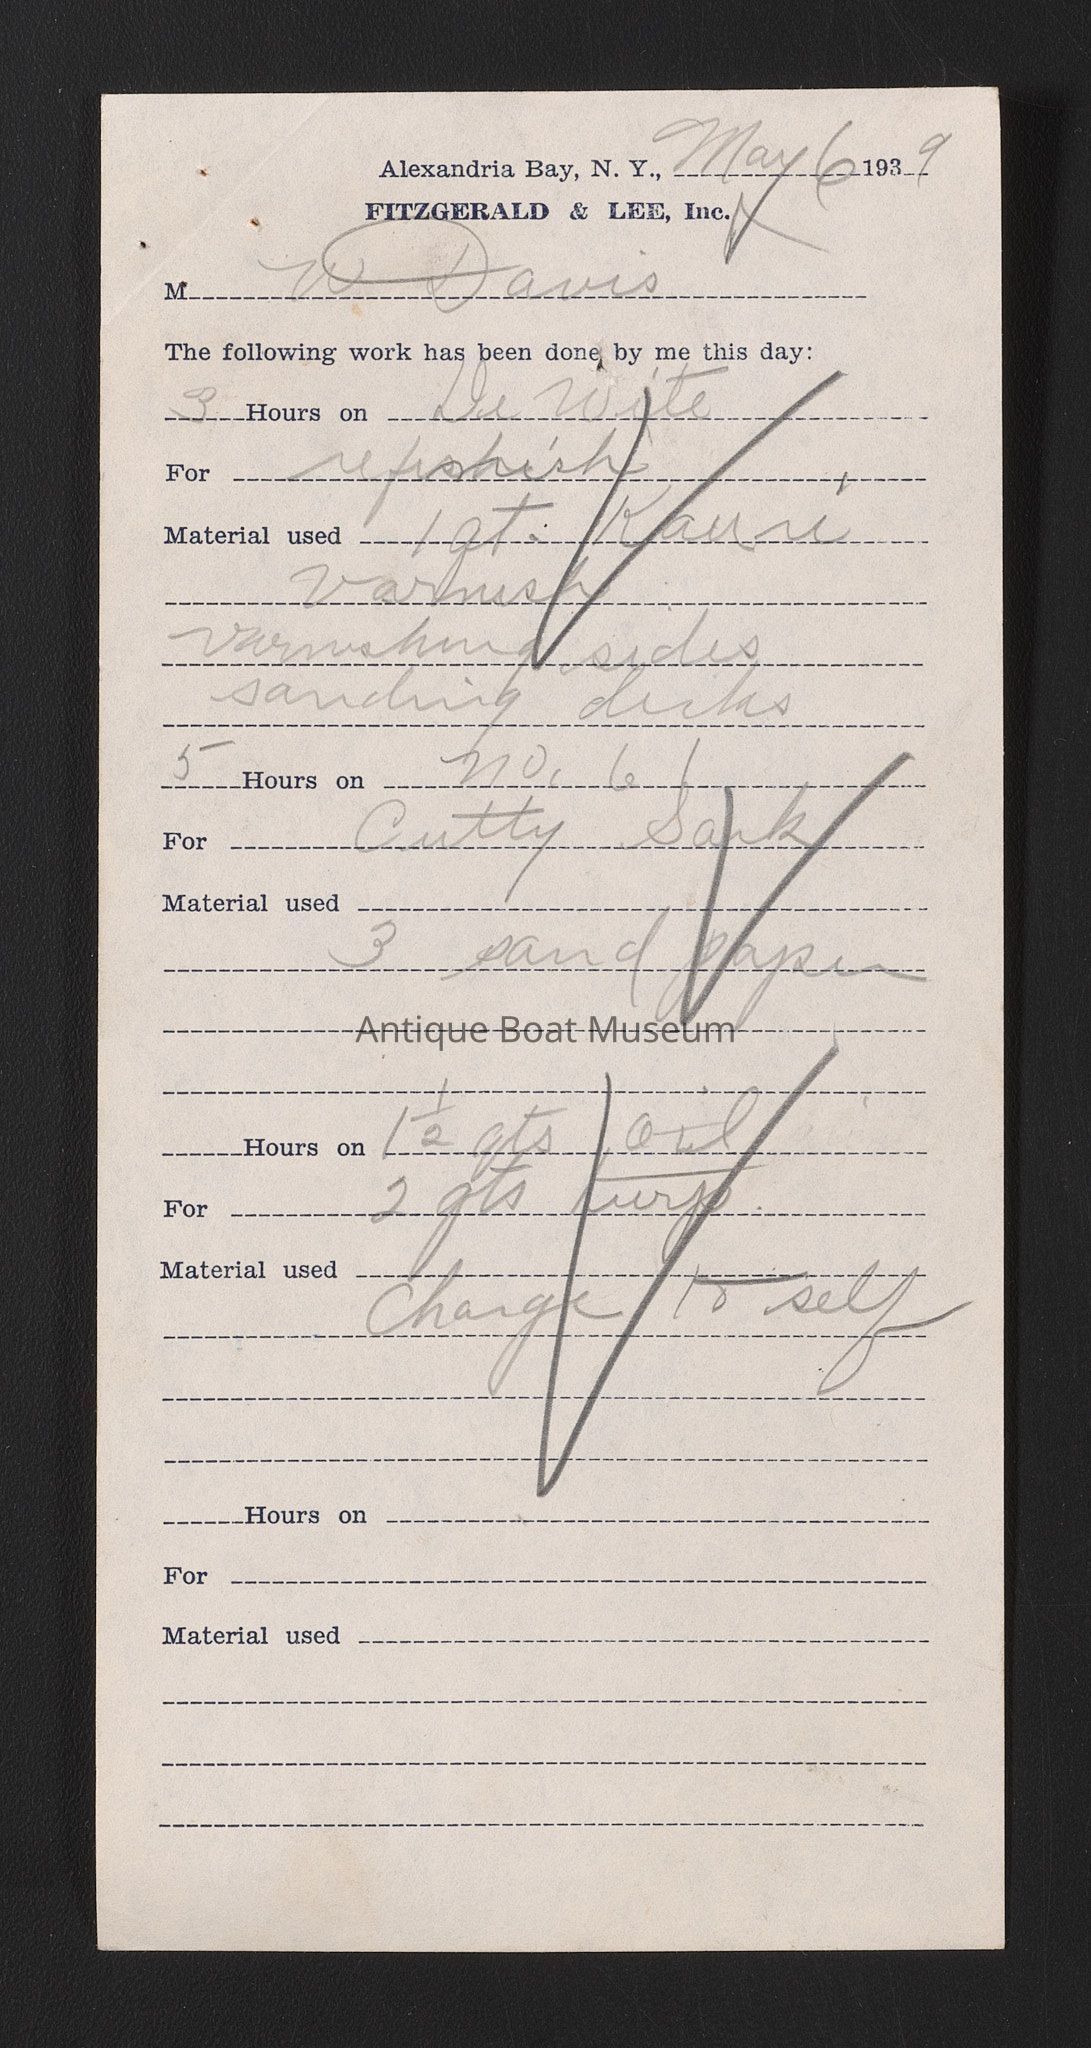 Alexandria Bay, N. Y., May 6 1939
FITZGERALD & LEE, Inc.
M W Davis
The following work has been done by me this day:
3 Hours on De Wite
For refinish
Material used 1 qt. Kauri
varnish
varnishing sides
sanding decks
5 Hours on No. 61
For Cutty Sark
Material used
3 sand paper
Antique Boat Museum
Hours on 1 1/2 qts oil
For 2 qts turp.
Material used
Charge to self
Hours on
For
Material used